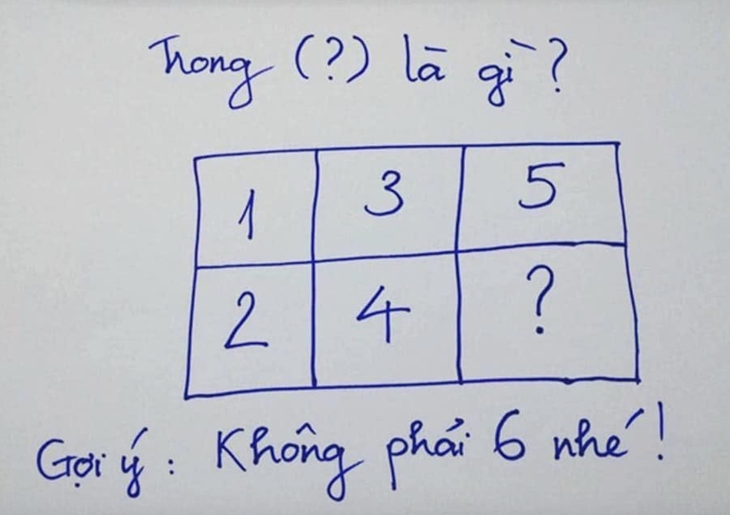 Trong (?) là gì?
1 3 5
2 4 ?
Gợi ý: Không phải 6 nhé!